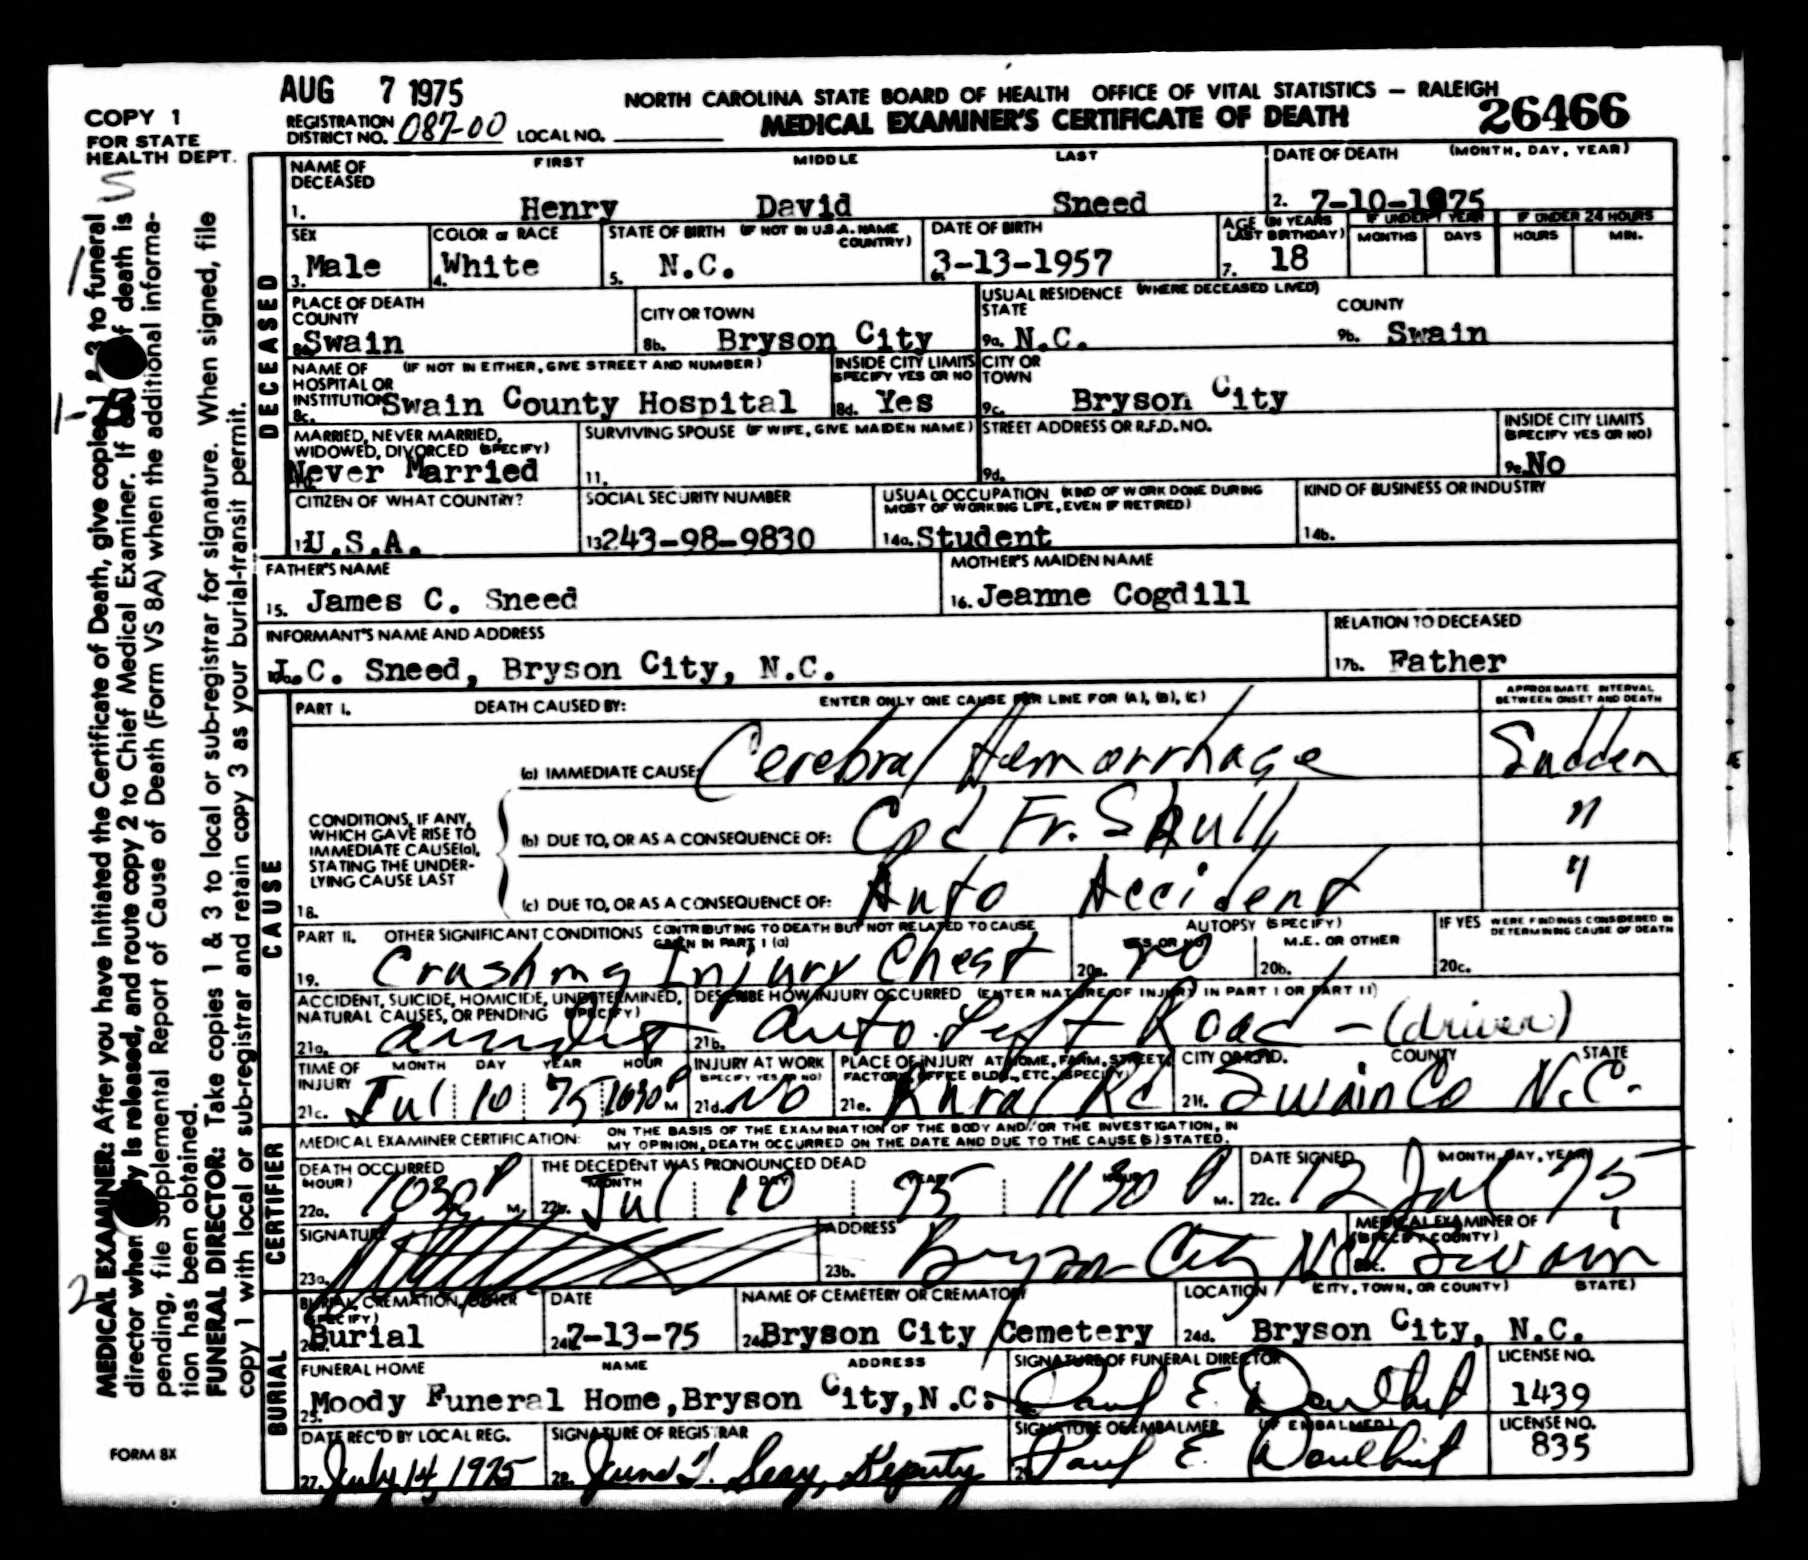 AUG 7 1975
COPY 1
FOR STATE
HEALTH DEPT.
NORTH CAROLINA STATE BOARD OF HEALTH OFFICE OF VITAL STATISTICS — RALEIGH
REGISTRATION DISTRICT NO. 087-00 LOCAL NO.
MEDICAL EXAMINER'S CERTIFICATE OF DEATH
26466
DECEASED
NAME OF DECEASED FIRST MIDDLE LAST
1. Henry David Sneed
DATE OF DEATH (MONTH, DAY, YEAR)
2. 7-10-1975
SEX
3. Male
COLOR or RACE
4. White
STATE OF BIRTH (IF NOT IN U.S.A. NAME COUNTRY)
5. N.C.
DATE OF BIRTH
6. 3-13-1957
AGE (IN YEARS LAST BIRTHDAY)
7. 18
IF UNDER 1 YEAR
MONTHS DAYS
IF UNDER 24 HOURS
HOURS MIN.
PLACE OF DEATH
COUNTY
8a. Swain
CITY OR TOWN
8b. Bryson City
USUAL RESIDENCE (WHERE DECEASED LIVED)
STATE
9a. N.C.
COUNTY
9b. Swain
NAME OF HOSPITAL OR INSTITUTION (IF NOT IN EITHER, GIVE STREET AND NUMBER)
8c. Swain County Hospital
INSIDE CITY LIMITS SPECIFY YES OR NO
8d. Yes
CITY OR TOWN
9c. Bryson City
MARRIED, NEVER MARRIED,
WIDOWED, DIVORCED (SPECIFY)
10. Never Married
SURVIVING SPOUSE (IF WIFE, GIVE MAIDEN NAME)
11.
STREET ADDRESS OR R.F.D. NO.
9d.
INSIDE CITY LIMITS
(SPECIFY YES OR NO)
9e. No
CITIZEN OF WHAT COUNTRY?
12. U.S.A.
SOCIAL SECURITY NUMBER
13. 243-98-9830
USUAL OCCUPATION (KIND OF WORK DONE DURING
MOST OF WORKING LIFE, EVEN IF RETIRED)
14a. Student
KIND OF BUSINESS OR INDUSTRY
14b.
FATHER'S NAME
15. James C. Sneed
MOTHER'S MAIDEN NAME
16. Jeanne Cogdill
INFORMANT'S NAME AND ADDRESS
17a. J.C. Sneed, Bryson City, N.C.
RELATION TO DECEASED
17b. Father
CAUSE
PART I. DEATH CAUSED BY: ENTER ONLY ONE CAUSE PER LINE FOR (A), (B), (C)
APPROXIMATE INTERVAL
BETWEEN ONSET AND DEATH
(a) IMMEDIATE CAUSE: Cerebral Hemorrhage Sudden
CONDITIONS, IF ANY,
WHICH GAVE RISE TO
IMMEDIATE CAUSE(a),
STATING THE UNDER-
LYING CAUSE LAST
(b) DUE TO, OR AS A CONSEQUENCE OF: Cpd Fr. Skull "
18. (c) DUE TO, OR AS A CONSEQUENCE OF: Auto Accident "
PART II. OTHER SIGNIFICANT CONDITIONS CONTRIBUTING TO DEATH BUT NOT RELATED TO CAUSE
GIVEN IN PART I (a)
19. Crushing Injury Chest
AUTOPSY (SPECIFY)
YES OR NO
20a. no
M.E. OR OTHER
20b.
IF YES WERE FINDINGS CONSIDERED IN
DETERMINING CAUSE OF DEATH
20c.
ACCIDENT, SUICIDE, HOMICIDE, UNDETERMINED,
NATURAL CAUSES, OR PENDING (SPECIFY)
21a. accident
DESCRIBE HOW INJURY OCCURRED (ENTER NATURE OF INJURY IN PART I OR PART II)
21b. auto Left Road - (driver)
TIME OF INJURY MONTH DAY YEAR HOUR
21c. Jul 10 75 1030 P M
INJURY AT WORK
(SPECIFY YES OR NO)
21d. NO
PLACE OF INJURY AT HOME, FARM, STREET,
FACTORY, OFFICE BLDG., ETC. (SPECIFY)
21e. Rural Rd
CITY OR R.F.D. COUNTY STATE
21f. Swain Co N.C.
CERTIFIER
MEDICAL EXAMINER CERTIFICATION: ON THE BASIS OF THE EXAMINATION OF THE BODY AND/OR THE INVESTIGATION, IN
MY OPINION, DEATH OCCURRED ON THE DATE AND DUE TO THE CAUSE(S) STATED.
DEATH OCCURRED
(HOUR)
22a. 1030 P M.
THE DECEDENT WAS PRONOUNCED DEAD
MONTH DAY YEAR HOUR
22b. Jul 10 75 1130 P M.
DATE SIGNED (MONTH, DAY, YEAR)
22c. 12 Jul 75
SIGNATURE
23a.
ADDRESS
23b. Bryson City NC
MEDICAL EXAMINER OF
(SPECIFY COUNTY)
23c. Swain
BURIAL
BURIAL, CREMATION, OTHER
(SPECIFY)
24a. Burial
DATE
24b. 7-13-75
NAME OF CEMETERY OR CREMATORY
24c. Bryson City Cemetery
LOCATION (CITY, TOWN, OR COUNTY) (STATE)
24d. Bryson City, N.C.
FUNERAL HOME NAME ADDRESS
25. Moody Funeral Home, Bryson City, N.C.
SIGNATURE OF FUNERAL DIRECTOR
Paul E. Douthit
LICENSE NO.
1439
DATE REC'D BY LOCAL REG.
27. July 14, 1975
SIGNATURE OF REGISTRAR
28. Deputy
SIGNATURE OF EMBALMER (IF EMBALMED)
Paul E. Douthit
LICENSE NO.
835
MEDICAL EXAMINER: After you have initiated the Certificate of Death, give copies 1 & 3 to funeral
director when body is released, and route copy 2 to Chief Medical Examiner. If of death is
pending, file Supplemental Report of Cause of Death (Form VS 8A) when the additional informa-
tion has been obtained.
FUNERAL DIRECTOR: Take copies 1 & 3 to local or sub-registrar for signature. When signed, file
copy 1 with local or sub-registrar and retain copy 3 as your burial-transit permit.
FORM 8X